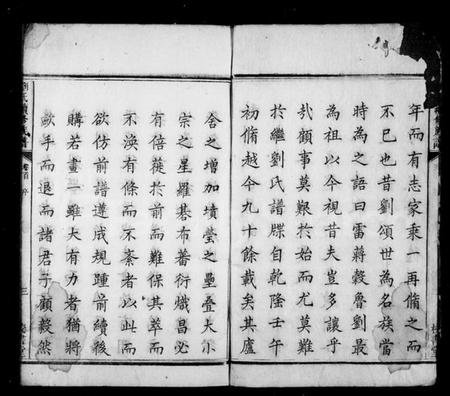 年而有志家乘一再脩之而
不已也昔劉頌世為名族當
時為之語曰雷蔣穀魯劉最
為祖以今視昔夫豈多讓乎
㢤顧事莫艱於始而尤莫難
於繼劉氏譜牒自乾隆壬午
初脩越今九十餘載矣其廬
舍之增加墳塋之壘叠大小
宗之星羅碁布蕃衍熾昌必
有倍蓰於前而難保其萃而
不渙有條而不紊者以此而
欲仿前譜遵成規踵前續後
購若畫一雖大有力者猶將
歛手而退而諸君子顧毅然
劉氏續修族譜
卷首
序
三